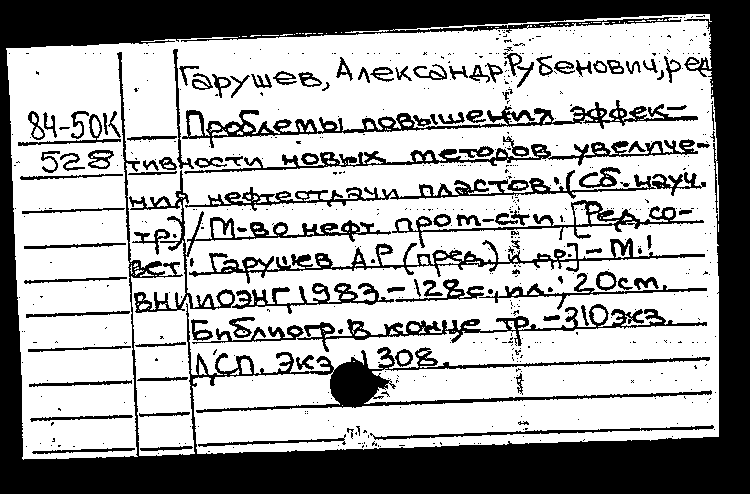 Гарушев, Александр Рубенович, ред
84-50К Проблемы повышения эффек-
528 тивности новых методов увеличе-
ния нефтеотдачи пластов: (Сб. науч.
тр.) / М-во нефт. пром-сти; [Ред. со-
вет: Гарушев А.Р. (пред.) и др.] - М.:
ВНИИОЭНГ, 1983. - 128с., ил.; 20см.
Библиогр. в конце тр. - 310 экз.
ДСП. Экз. 1308.